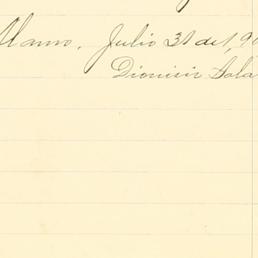 Alamo. Julio 31 de 1,90
Dionicio Sala